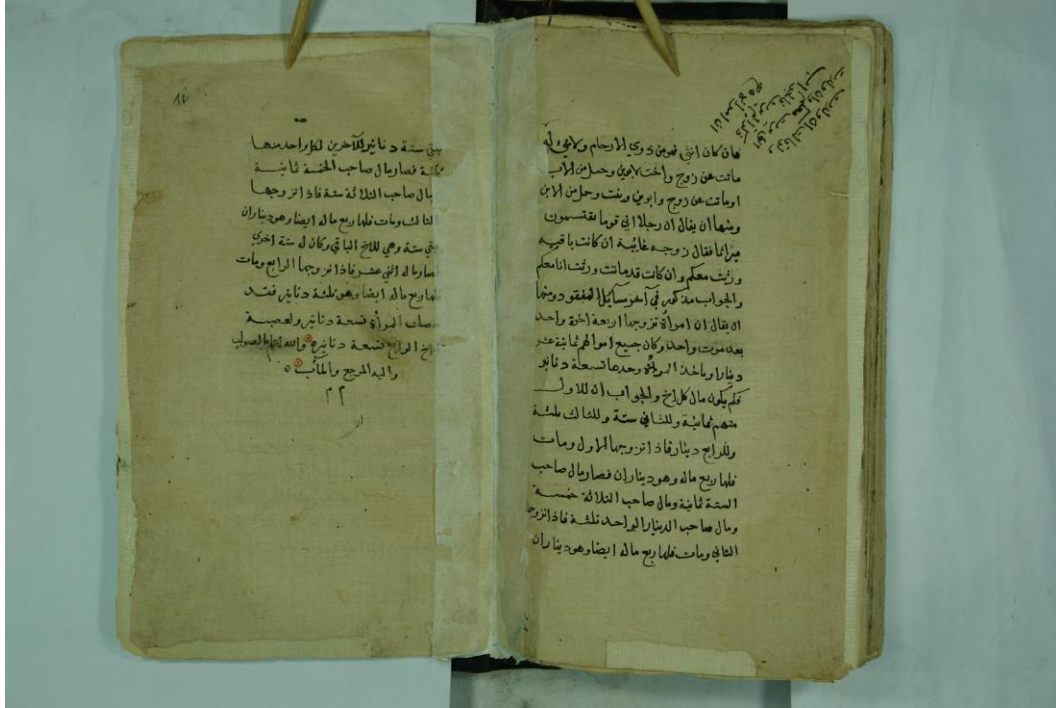 فان كان انثي فهو من ذوي الارحام ولا شئ له
ماتت عن زوج واخت لابوين وحمل من الاب
او ماتت عن زوج وابوين وبنت وحمل من الابن
ومنها ان يقال ان رجلا اتي قوما يقتسمون
ميراثا فقال زوجه غائبة ان كانت باقيه
ورثت معكم وان كانت قد ماتت ورثت انا معكم
والجواب مذكور في آخر مسايل المفقود ومنها
ان يقال ان امرأة تزوجها اربعة اخوة واحد
بعد موت واحد وكان جميع اموالهم ثمانية عشر
دينارا وياخذ المرأة وحدها تسعة دنانير
فكم يكون مال كل اخ والجواب ان للاول
منهم ثمانية وللثاني ستة وللثالث ثلثة
وللرابع دينار فاذا تزوجها الاول ومات
فلها ربع ماله وهو ديناران فصار مال صاحب
الستة ثمانية ومال صاحب الثلاثة خمسة
ومال صاحب الدينار الواحد ثلثة فاذا تزوجـ
الثاني ومات فلها ربع ماله ايضا وهو ديناران
٨٧
يبقي ستة دنانير للآخرين لكل واحد منها
ثلثة فصار مال صاحب الخمسة ثمانية
مال صاحب الثلاثة ستة فاذا تزوجها
الثالث ومات فلها ربع ماله ايضا وهو ديناران
يبقي ستة وهي للاخ الباقي وكان له ستة اخري
فصار ماله اثني عشر فاذا تزوجها الرابع ومات
فلها ربع ماله ايضا وهو ثلثة دنانير فقد
حصلت المرأة تسعة دنانير ولعصبة
الاخ الرابع تسعة دنانير والله اعلم بالصواب
واليه المرجع والمآب
م م